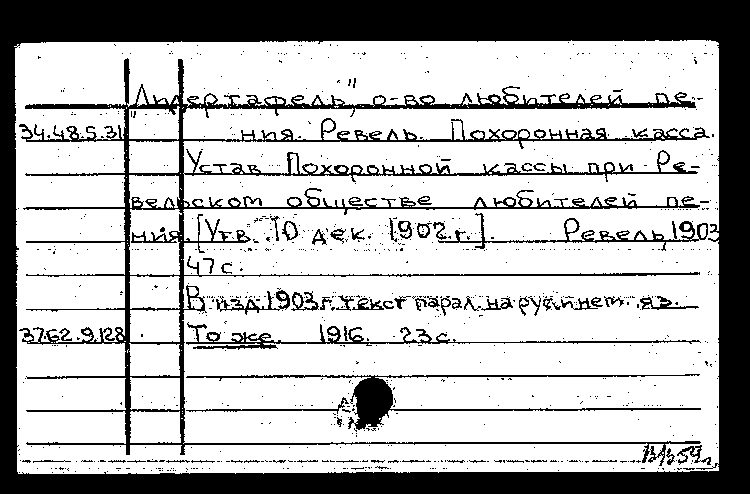 „Лидертафель", о-во любителей пе-
34.48.5.31 ния. Ревель. Похоронная касса.
Устав Похоронной кассы при Ре-
вельском обществе любителей пе-
ния. [Утв. 10 дек. 1902 г.]. Ревель, 1903
47 с.
В изд. 1903 г. текст парал. на рус. и нем. яз.
37.62.9.128 То же. 1916. 23 с.